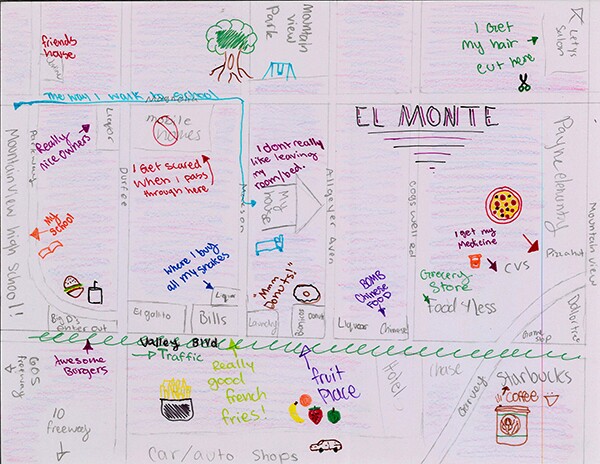 friends
house
Mountain
view
Park
I Get
my hair
cut here
Letys
Salon
The way I walk to school
Liquor
mobile
homes
EL MONTE
Really
nice owners
I Get scared
when I pass
through here
I dont really
like leaving
my
room/bed.
Mountain View high school!
Parkway
Durfee
Maxson
My
house
Allgeyer Aven
Cogswell ed
Payne elementry
Mountain view
My
school
where I buy
all my snakes
"Mmm
Donuts!"
BOMB
Chinese
FOOD
I get my
Medicine
CVS
Pizza hut
Grocery
Store
Food 4less
Dollartree
Game
stop
Big D's
Burger Out
El gallito
Liquor
Bills
Laundry
Business
Donut
Liquor
Chinese
Valley Blvd
Traffic
Awesome
Burgers
605
Freeway
10
freeway
Really
good
french
fries!
fruit
Place
Hotel
Chase
Garvey
Starbucks
Coffee
Car/auto shops